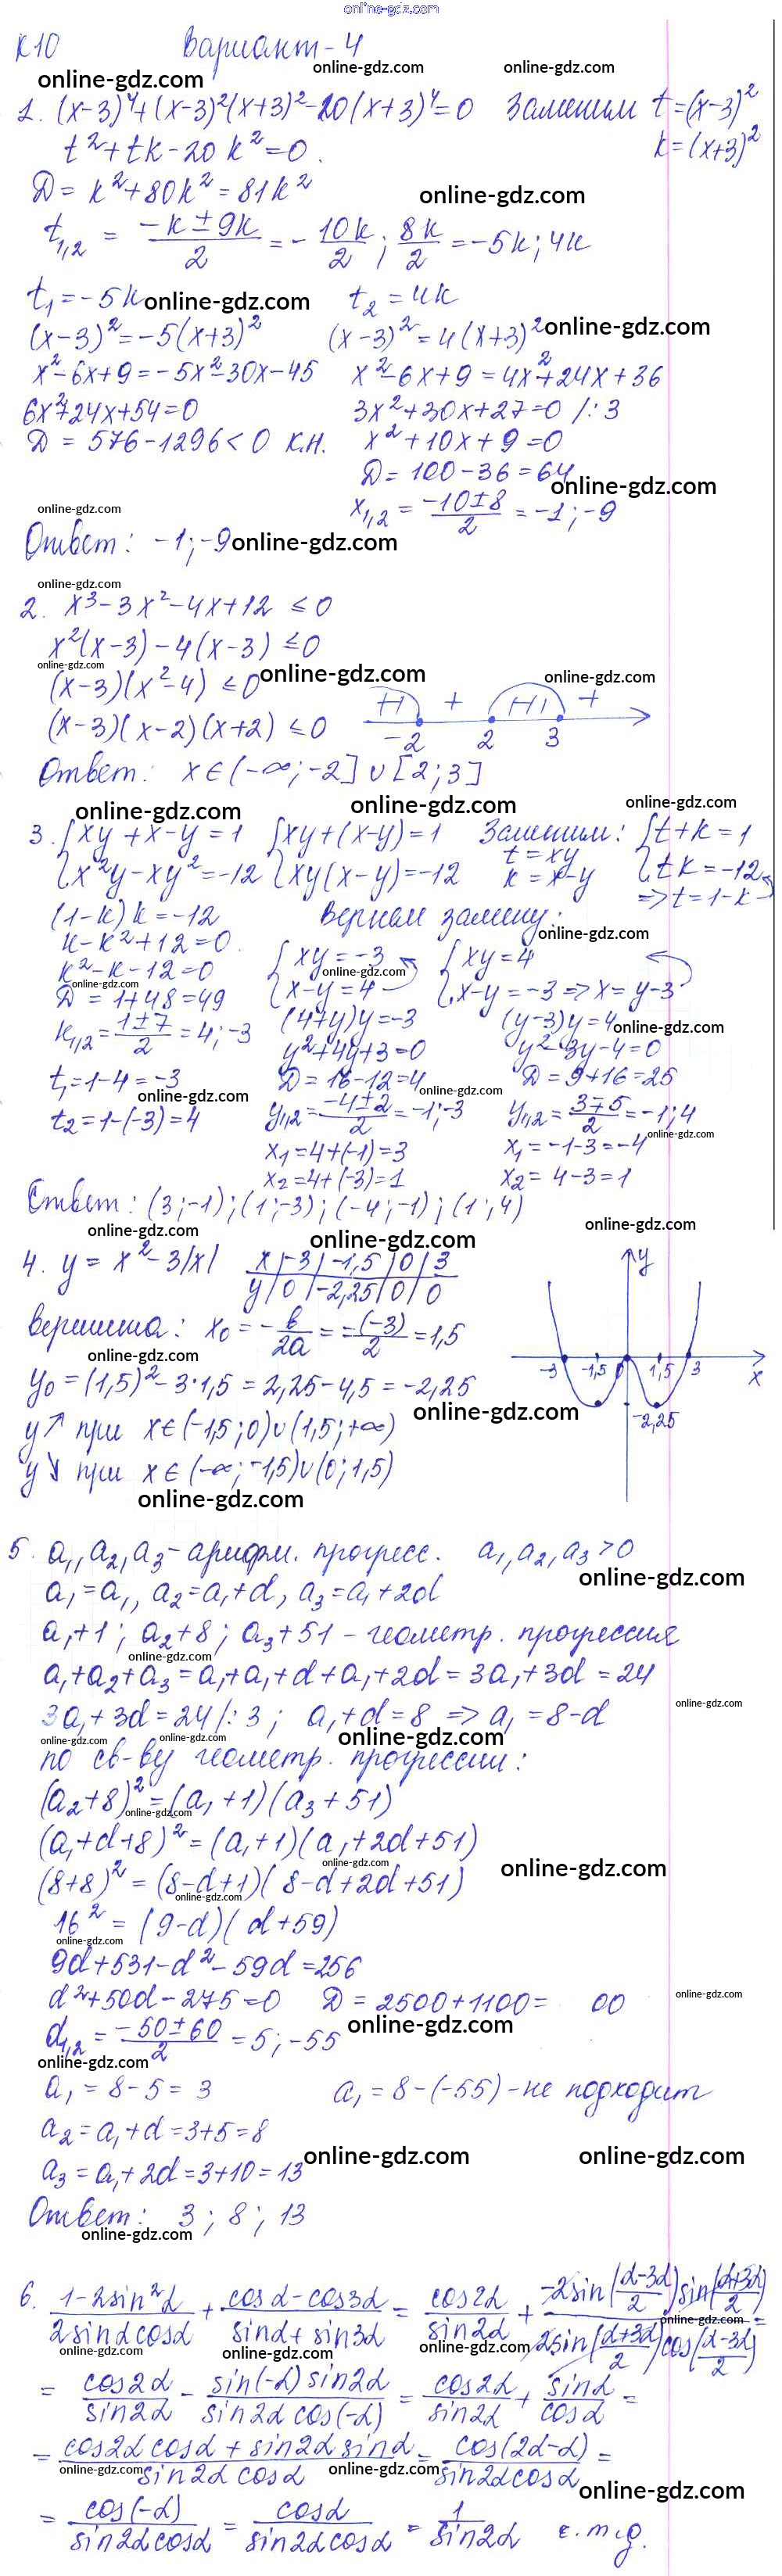 online-gdz.com
К10 Вариант-4
online-gdz.com online-gdz.com online-gdz.com
1. (x-3)⁴+(x-3)²(x+3)²-20(x+3)⁴=0 Заменим t=(x-3)²
t²+tk-20k²=0. k=(x+3)²
Д=k²+80k²=81k² online-gdz.com
t₁,₂ = (-k±9k)/2 = -10k/2; 8k/2 = -5k; 4k
t₁=-5k online-gdz.com t₂=4k
(x-3)²=-5(x+3)² (x-3)²=4(x+3)² online-gdz.com
x²-6x+9=-5x²-30x-45 x²-6x+9=4x²+24x+36
6x²+24x+54=0 3x²+30x+27=0 /:3
Д=576-1296<0 К.Н. x²+10x+9=0
Д=100-36=64
online-gdz.com
online-gdz.com x₁,₂ = (-10±8)/2 = -1; -9
Ответ: -1; -9 online-gdz.com
online-gdz.com
2. x³-3x²-4x+12 ≤0
x²(x-3)-4(x-3) ≤0
online-gdz.com
(x-3)(x²-4) ≤0 online-gdz.com online-gdz.com
(x-3)(x-2)(x+2) ≤0 + +
-2 2 3
Ответ: x∈(-∞;-2]∪[2;3]
online-gdz.com online-gdz.com online-gdz.com
3. {xy+x-y=1 {xy+(x-y)=1 Заменим: {t+k=1
{x²y-xy²=-12 {xy(x-y)=-12 t=xy k=x-y {tk=-12
=>t=1-k
(1-k)k=-12 Вернем замену:
k-k²+12=0 online-gdz.com
k²-k-12=0 {xy=-3 {xy=4
online-gdz.com online-gdz.com
Д=1+48=49 {x-y=4 {x-y=-3=>x=y-3
k₁,₂=(1±7)/2=4;-3 (4+y)y=-3 (y-3)y=4 online-gdz.com
y²+4y+3=0 y²-3y-4=0
t₁=1-4=-3 Д=16-12=4 Д=9+16=25
online-gdz.com online-gdz.com
t₂=1-(-3)=4 y₁,₂=(-4±2)/2=-1;-3 y₁,₂=(3∓5)/2=-1;4
x₁=4+(-1)=3 x₁=-1-3=-4 online-gdz.com
x₂=4+(-3)=1 x₂=4-3=1
Ответ: (3;-1);(1;-3);(-4;-1);(1;4)
online-gdz.com online-gdz.com online-gdz.com
4. y=x²-3|x| x|-3|-1,5|0|3 y
y|0|-2,25|0|0
вершина: x₀=-b/2a=-(-3)/2=1,5
online-gdz.com
-3 -1,5 0 1,5 3 x
y₀=(1,5)²-3·1,5=2,25-4,5=-2,25
online-gdz.com -2,25
y↗ при x∈(-1,5;0)∪(1,5;+∞)
y↘ при x∈(-∞;-1,5)∪(0;1,5)
online-gdz.com
5. a₁,a₂,a₃-арифм. прогресс. a₁,a₂,a₃>0
online-gdz.com
a₁=a₁, a₂=a₁+d, a₃=a₁+2d
a₁+1; a₂+8; a₃+51 - геометр. прогрессия
online-gdz.com
a₁+a₂+a₃=a₁+a₁+d+a₁+2d=3a₁+3d=24
online-gdz.com
3a₁+3d=24/:3; a₁+d=8 => a₁=8-d
online-gdz.com online-gdz.com online-gdz.com
по св-ву геометр. прогрессии:
(a₂+8)²=(a₁+1)(a₃+51)
online-gdz.com
(a₁+d+8)²=(a₁+1)(a₁+2d+51)
online-gdz.com online-gdz.com
(8+8)²=(8-d+1)(8-d+2d+51)
online-gdz.com
16²=(9-d)(d+59)
online-gdz.com
9d+531-d²-59d=256
d²+50d-275=0 Д=2500+1100= 00 online-gdz.com
d₁,₂=(-50±60)/2=5;-55 online-gdz.com
online-gdz.com
a₁=8-5=3 a₁=8-(-55)-не подходит
a₂=a₁+d=3+5=8
online-gdz.com online-gdz.com
a₃=a₁+2d=3+10=13
Ответ: 3; 8; 13
online-gdz.com
6. (1-2sin²α)/(2sinαcosα) + (cosα-cos3α)/(sinα+sin3α) = cos2α/sin2α + (-2sin((α-3α)/2)sin((α+3α)/2))/(2sin((α+3α)/2)cos((α-3α)/2)) =
online-gdz.com online-gdz.com online-gdz.com
= cos2α/sin2α - (sin(-α)sin2α)/(sin2αcos(-α)) = cos2α/sin2α + sinα/cosα =
= (cos2αcosα+sin2αsinα)/(sin2αcosα) = cos(2α-α)/(sin2αcosα) =
online-gdz.com online-gdz.com online-gdz.com
= cos(-α)/(sin2αcosα) = cosα/(sin2αcosα) = 1/sin2α ч.т.д.